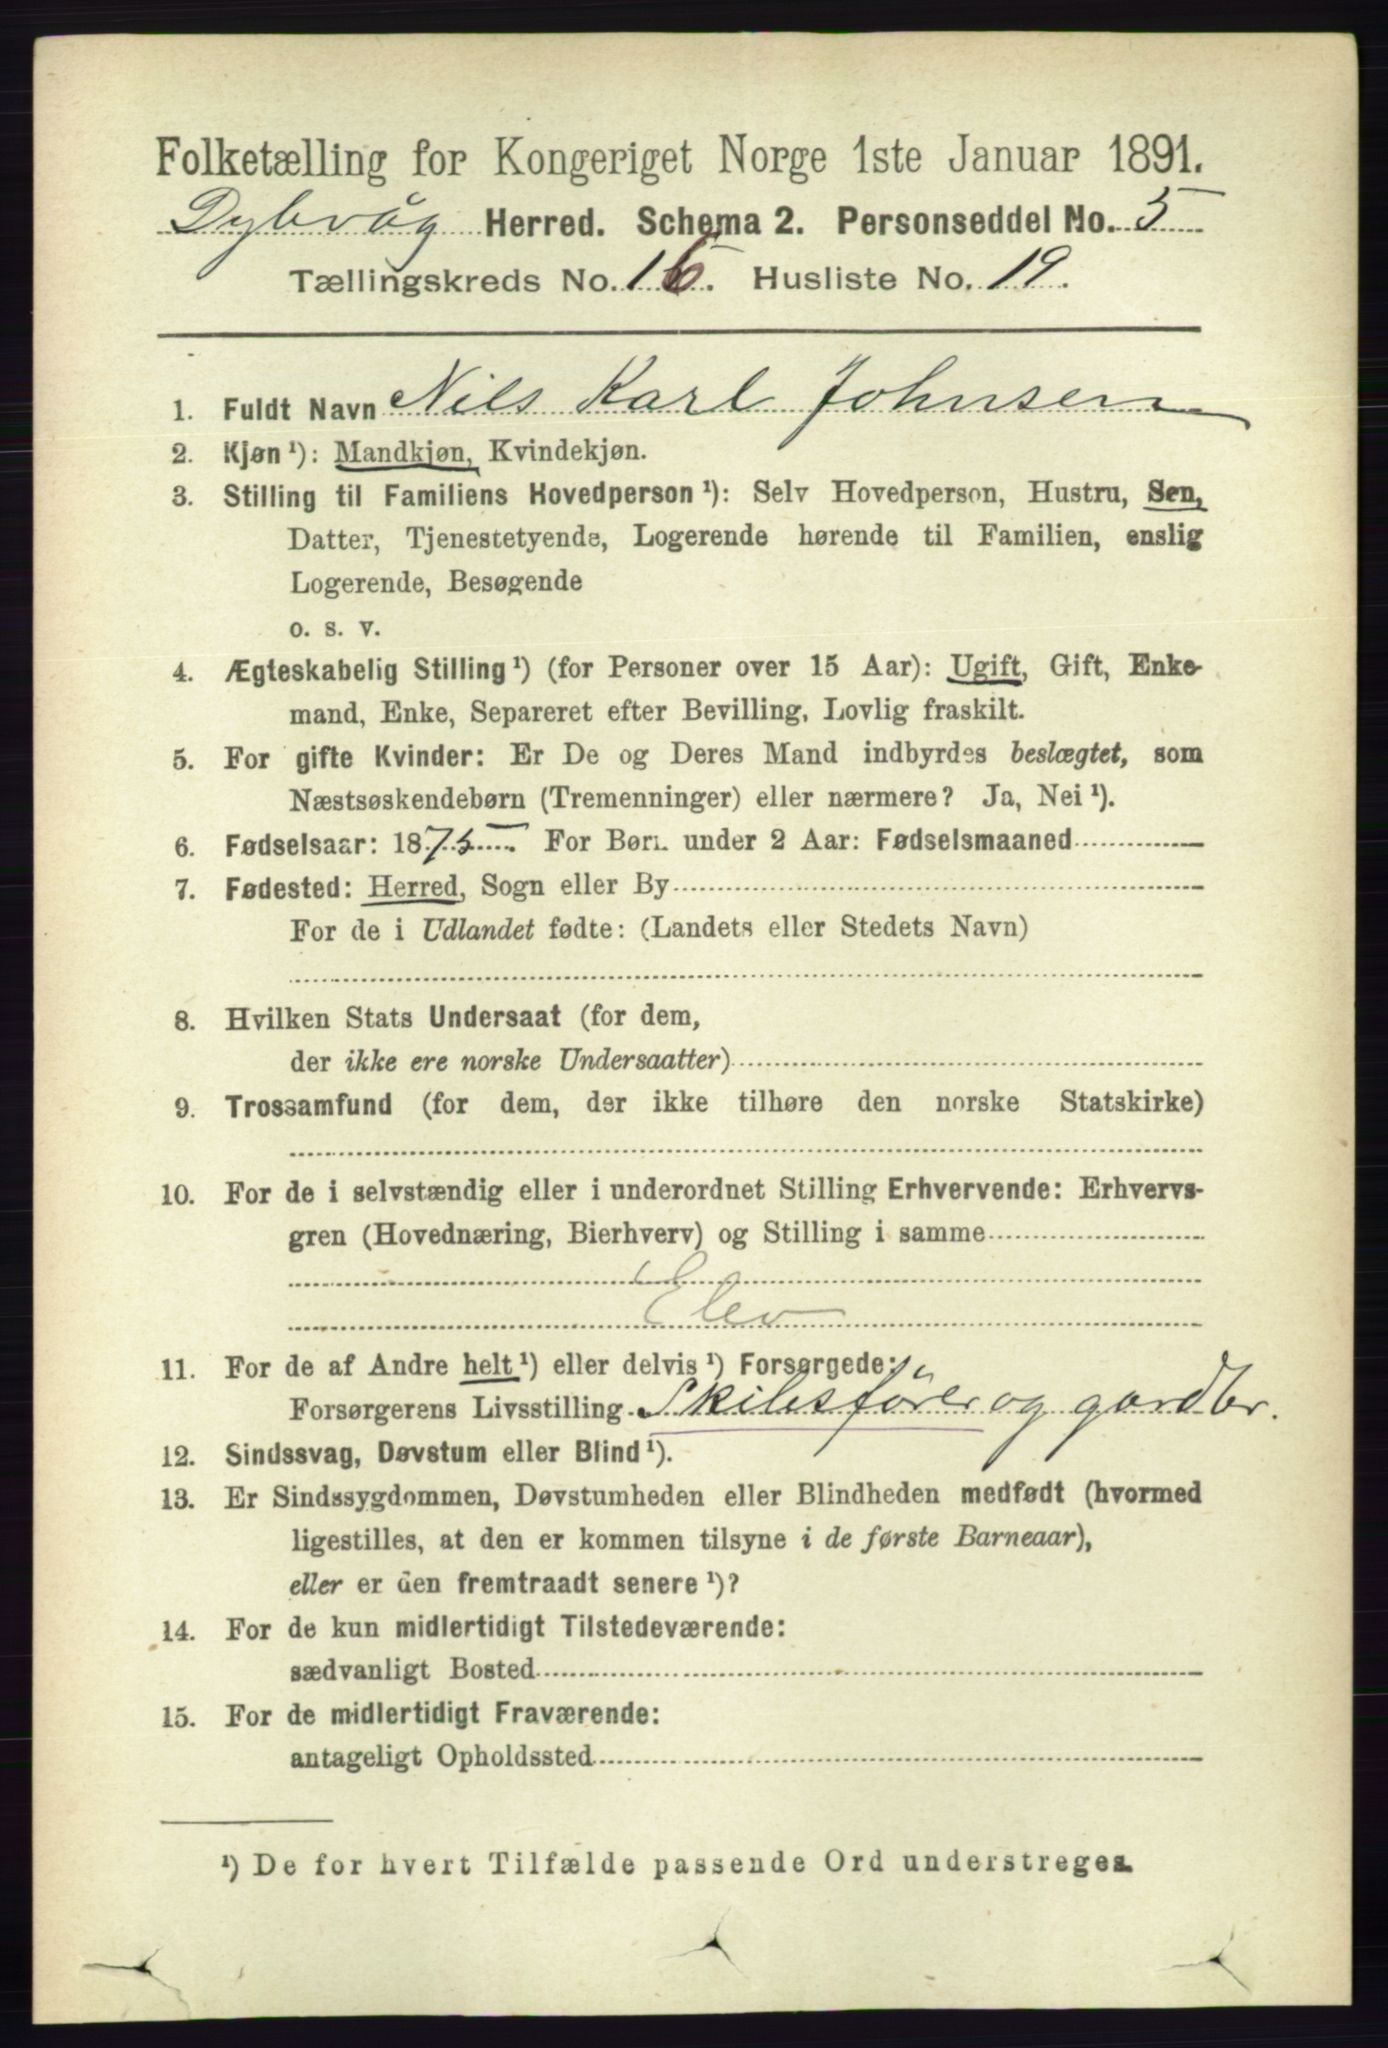 Folketælling for Kongeriget Norge 1ste Januar 1891.
Dybvåg Herred. Schema 2. Personseddel No. 5
Tællingskreds No. 16. Husliste No. 19.
1. Fuldt Navn Nils Karl Johnsen
2. Kjøn ¹): Mandkjøn, Kvindekjøn.
3. Stilling til Familiens Hovedperson ¹): Selv Hovedperson, Hustru, Søn,
Datter, Tjenestetyende, Logerende hørende til Familien, enslig
Logerende, Besøgende
o. s. v.
4. Ægteskabelig Stilling ¹) (for Personer over 15 Aar): Ugift, Gift, Enke-
mand, Enke, Separeret efter Bevilling, Lovlig fraskilt.
5. For gifte Kvinder: Er De og Deres Mand indbyrdes beslægtet, som
Næstsøskendebørn (Tremenninger) eller nærmere? Ja, Nei ¹).
6. Fødselsaar: 1875 For Børn under 2 Aar: Fødselsmaaned
7. Fødested: Herred, Sogn eller By
For de i Udlandet fødte: (Landets eller Stedets Navn)
8. Hvilken Stats Undersaat (for dem,
der ikke ere norske Undersaatter)
9. Trossamfund (for dem, der ikke tilhøre den norske Statskirke)
10. For de i selvstændig eller i underordnet Stilling Erhvervende: Erhvervs-
gren (Hovednæring, Bierhverv) og Stilling i samme
Elev
11. For de af Andre helt ¹) eller delvis ¹) Forsørgede:
Forsørgerens Livsstilling Skibsförer og gardbr.
12. Sindssvag, Døvstum eller Blind ¹).
13. Er Sindssygdommen, Døvstumheden eller Blindheden medfødt (hvormed
ligestilles, at den er kommen tilsyne i de første Barneaar),
eller er den fremtraadt senere ¹)?
14. For de kun midlertidigt Tilstedeværende:
sædvanligt Bosted
15. For de midlertidigt Fraværende:
antageligt Opholdssted
¹) De for hvert Tilfælde passende Ord understreges.